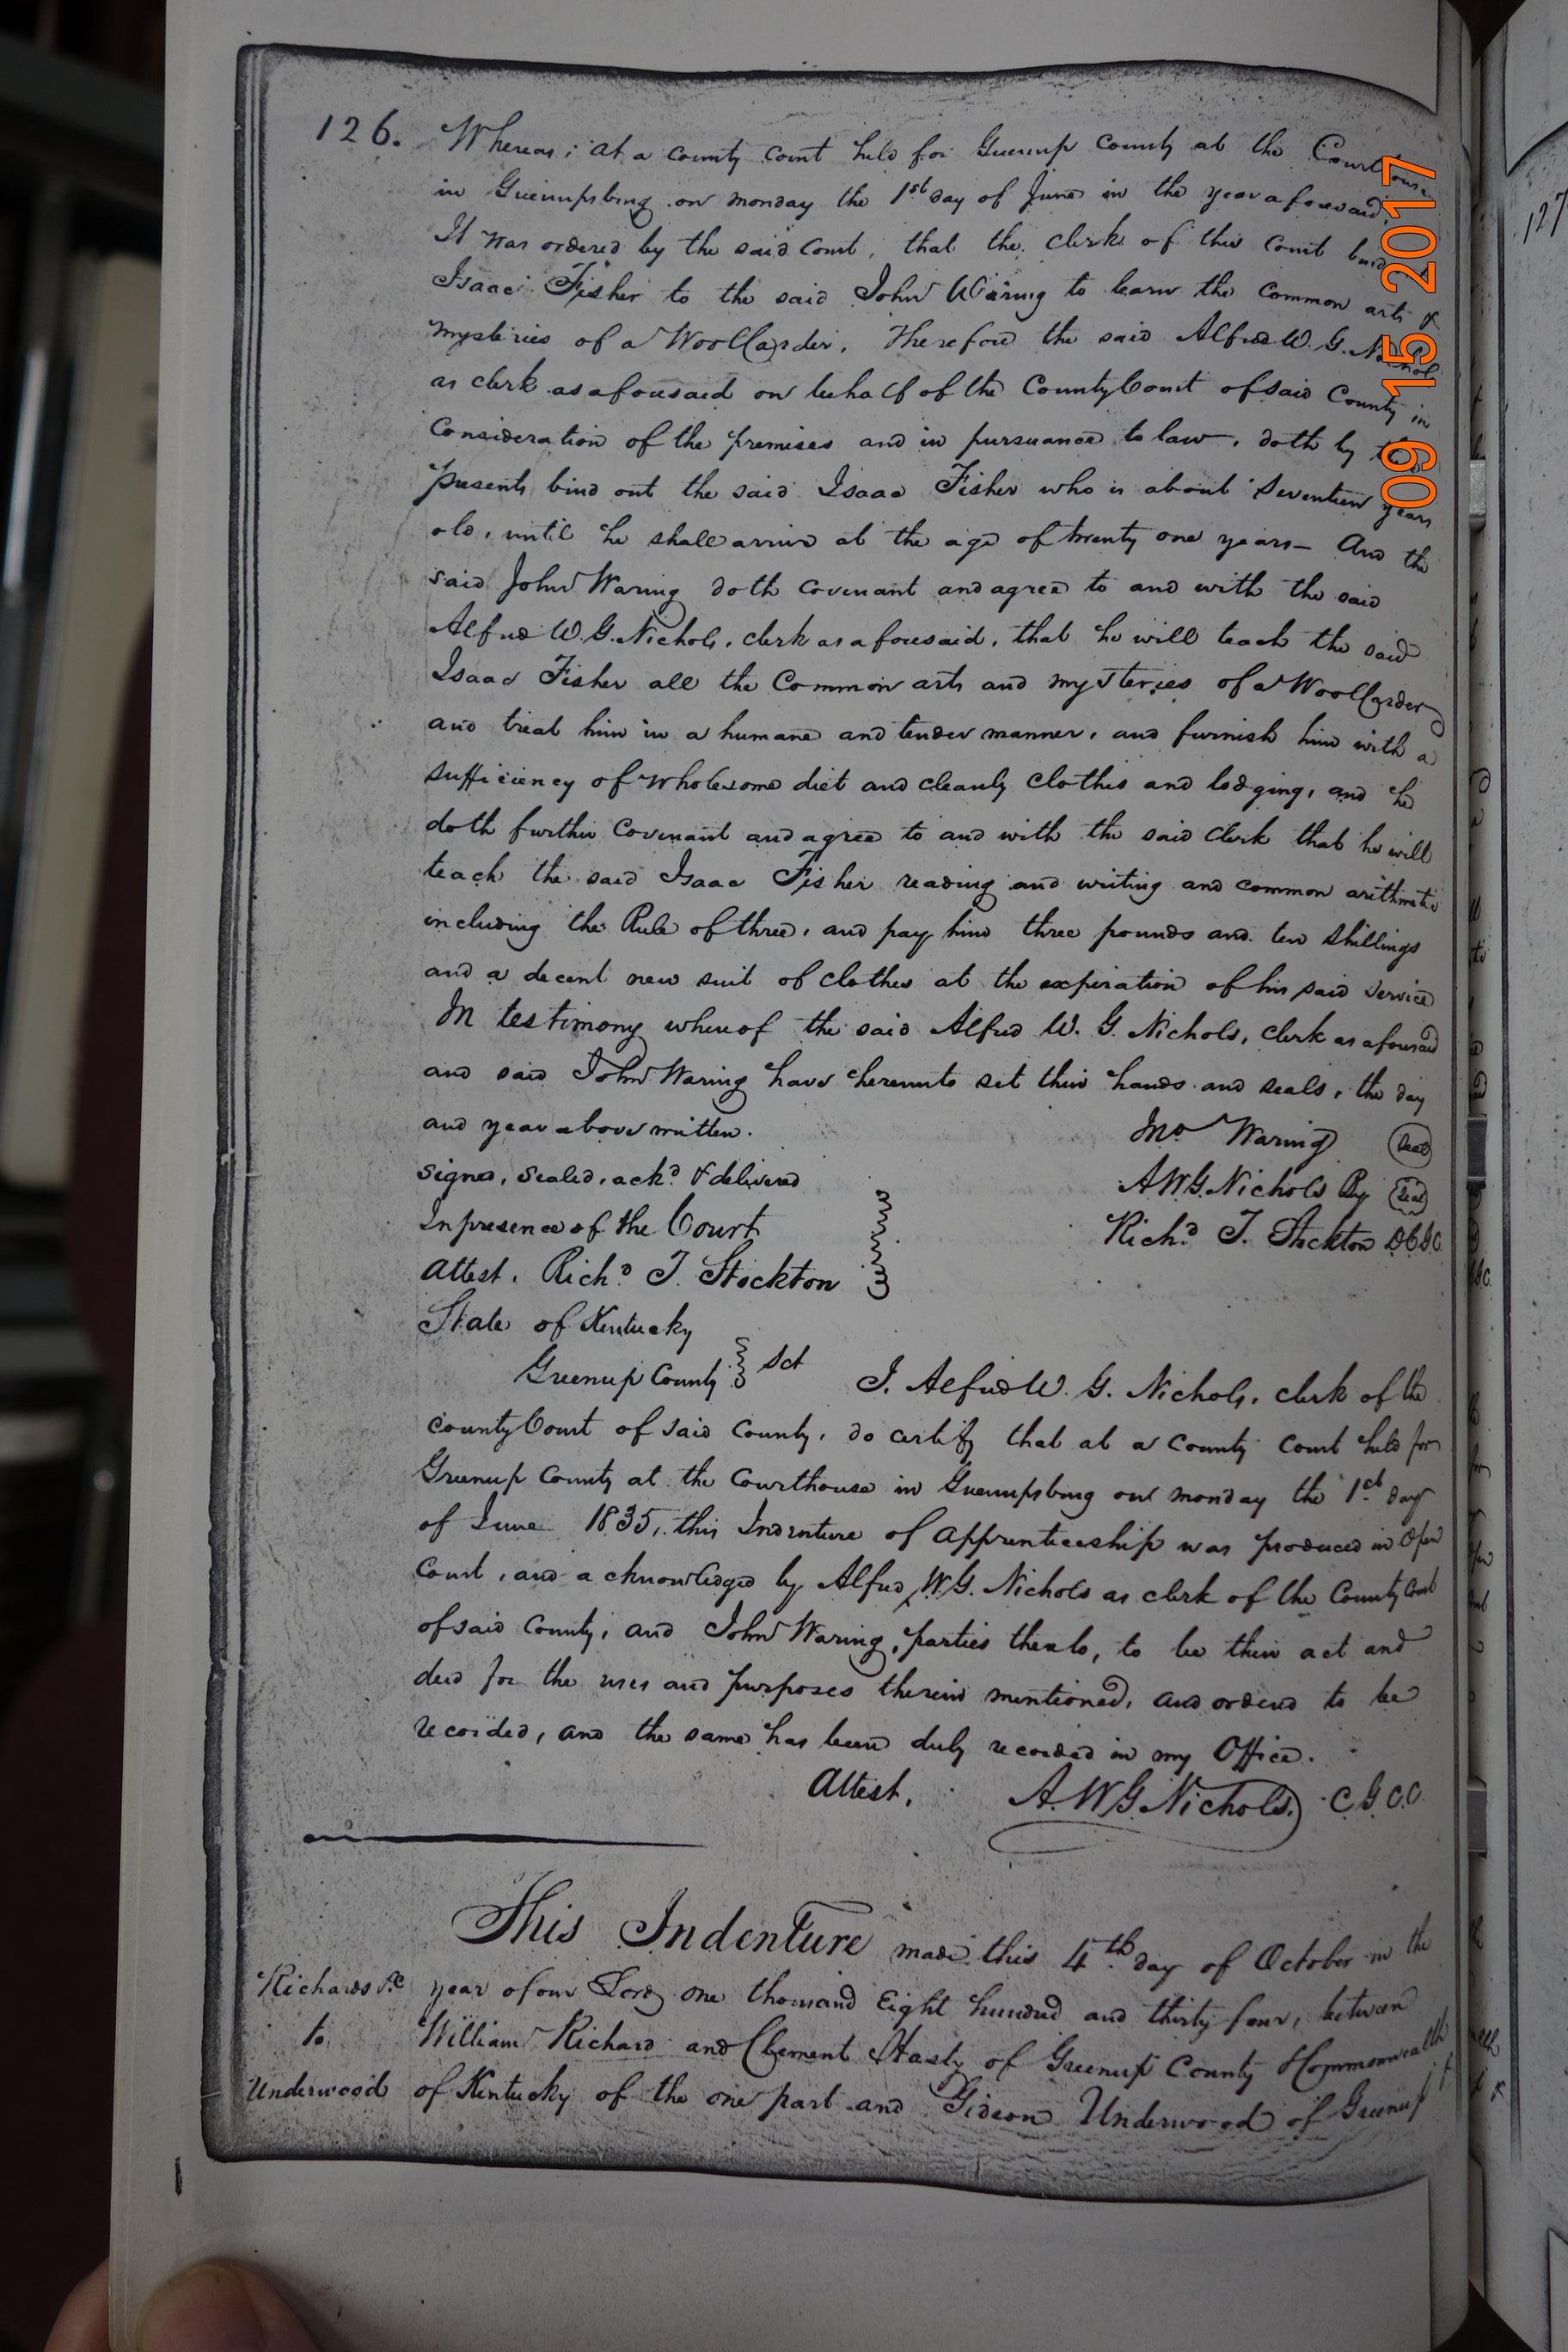 126.
Whereas; at a county court held for Greenup County at the Courthouse
in Greenupsburg on monday the 1st day of June in the year aforesaid
It was ordered by the said Court, that the clerk of this court bind
Isaac Fisher to the said John Waring to learn the common arts &
mysteries of a WoolCarder. Therefore the said Alfred W. G. Nichols
as clerk as aforesaid on behalf of the County Court of said County in
Consideration of the premises and in pursuance to law, doth by
presents bind out the said Isaac Fisher who is about Seventeen years
old, until he shall arrive at the age of twenty one years— And the
said John Waring doth covenant and agree to and with the said
Alfred W. G. Nichols, clerk as aforesaid, that he will teach the said
Isaac Fisher all the Common arts and mysteries of a WoolCarder
and treat him in a humane and tender manner, and furnish him with a
sufficiency of wholesome diet and cleanly clothes and lodging, and he
doth further Covenant and agree to and with the said Clerk that he will
teach the said Isaac Fisher reading and writing and common arithmetic
including the Rule of three, and pay him three pounds and ten shillings
and a decent new suit of clothes at the expiration of his said service
In testimony whereof the said Alfred W. G. Nichols, clerk as aforesaid
and said John Waring have hereunto set their hands and seals, the day
and year above written.
Jno Waring Seal
signed, sealed, ackd. & delivered
A W G. Nichols By Seal
In presence of the Court
Richd. T. Stockton D.C.G.C.
Attest. Richd. T. Stockton
State of Kentucky
Greenup County Sct
I. Alfred W. G. Nichols, clerk of the
County Court of said County, do certify that at a County Court held for
Greenup County at the Courthouse in Greenupsburg on monday the 1st day
of June 1835, this Indenture of apprenticeship was produced in Open
Court, and acknowledged by Alfred W. G. Nichols as clerk of the County Court
of said County, and John Waring, parties thereto, to be their act and
deed for the uses and purposes therein mentioned, and ordered to be
recorded, and the same has been duly recorded in my Office.
Attest, A. W G. Nichols. C G C C
This Indenture made this 4th day of October in the
Richards &c year of our Lord one thousand Eight hundred and thirty four, between
to William Richard and Clement Hasty of Greenup County & Commonwealth
Underwood of Kentucky of the one part and Gideon Underwood of Greenup
09 15 2017
127